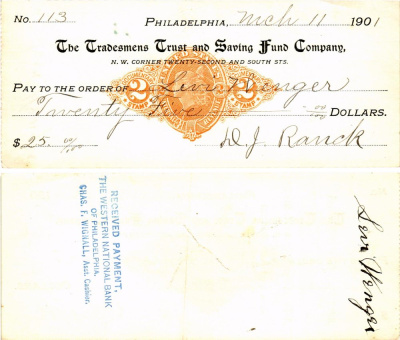 No. 113 PHILADELPHIA, Mch 11 1901
The Tradesmens Trust and Saving Fund Company,
N. W. CORNER TWENTY-SECOND AND SOUTH STS.
PAY TO THE ORDER OF Levi Wenger
Twenty Five 00/100 DOLLARS.
$25.00/100 D. J. Ranck
2 2
RECEIVED PAYMENT,
THE WESTERN NATIONAL BANK
OF PHILADELPHIA,
CHAS. F. WIGNALL, Asst. Cashier.
Levi Wenger